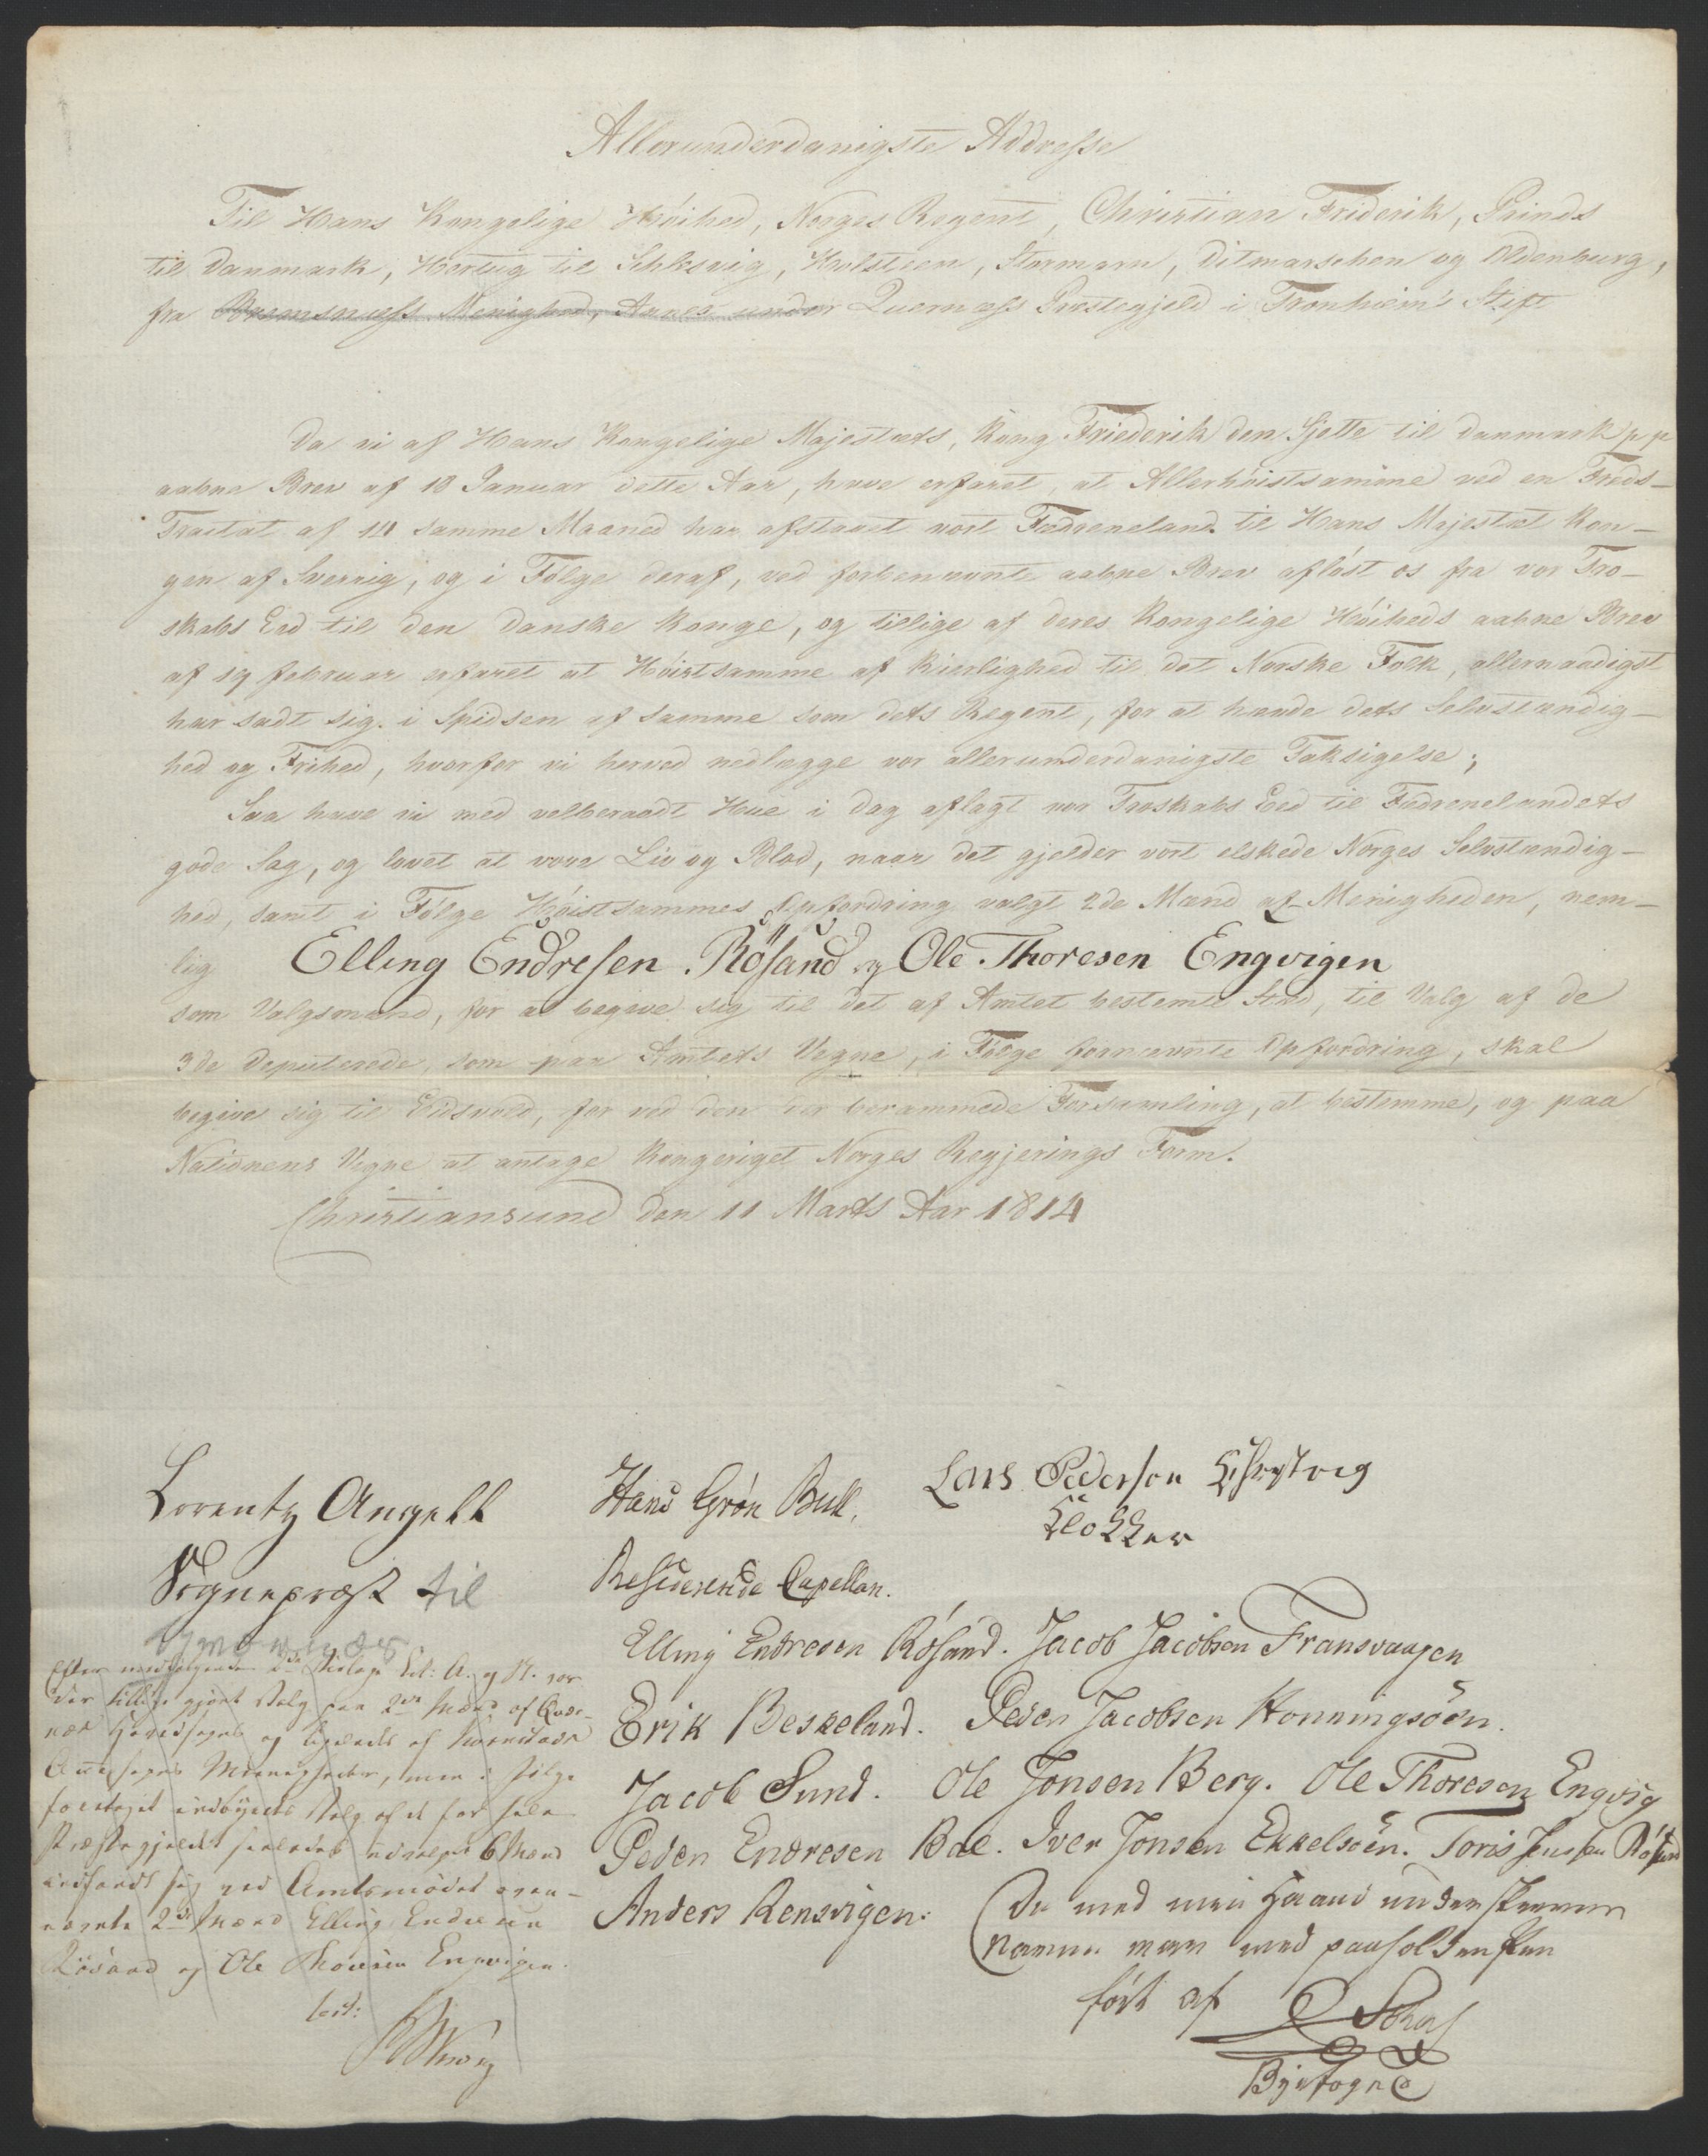 Allerunderdanigste Addresse
Til Hans Kongelige Höihed, Norges Regent, Christian Friderik, Prinds
til Danmark, Hertug til Schlesvig, Holsteen, Stormarn, Ditmarschen og Oldenburg,
fra Bremsnæss Menighed, Annex under Quernæss Præstegjeld i Tronhiem's Stift
Da vi af Hans Kongelige Majestæts, Kong Friederik den Sjette til Danmark pp
aabne Brev af 18 Januar dette Aar, have erfaret, at Allerhöistsamme ved en Freds-
Tractat af 14 samme Maaned har afstaaet vort Fædreneland til Hans Majestæt Kon-
gen af Sverrig, og i Fölge deraf, ved forbenævnte aabne Brev aflöst os fra vor Tro-
skabs Eed til den danske Konge, og tillige af deres Kongelige Höiheds aabne Brev
af 19 februar erfaret at Höistsamme af Kierlighed til det Norske Folk, allernaadigst
har sadt sig i Spidsen af samme som dets Regent, for at hævde dets Selvstændig-
hed og Frihed, hvorfor vi herved nedlægge vor allerunderdanigste Taksigelse;
Saa have vi med velberaadt Hue i Dag aflagt vor Troskabs Eed til Fædrenelandets
gode Sag, og lovet at vove Liv og Blod, naar det gjelder vort elskede Norges Selvstændig-
hed, samt i Fölge Höistsammes Opfordring valgt 2de Mænd af Menigheden, nem-
lig Elling Endresen Rösand og Ole Thoresen Engvigen
som Valgsmænd, for at begive sig til det af Amtet bestemte Sted, til Valg af de
3de Deputerede, som paa Amtets Vegne, i Fölge fornævnte Opfordring, skal
begive sig til Eidsvold, for ved den der berammede Forsamling, at bestemme, og paa
Nationens Vegne at antage Kongeriget Norges Regjerings Form.
Christiansund den 11 Marts Aar 1814
Lorentz Angell
Sognepræst til
Qvernæs
Hans Grön Bull,
Residerende Capellan.
Lars Pedersen
Klokker
Elling Endresen Rösand. Jacob Jacobsen Fransvaagen
Erik Beskeland. Peder Jacobsen Honningsöen.
Jacob Sund. Ole Jonsen Berg. Ole Thoresen Engvig
Peder Endresen Bae. Iver Jonsen Ekkelsöen. Toris Jensen Rösand
Anders Rensvigen.
med paaholden Pen
fört af
Byefoged
Efter medfölgende 2de Bilage Lit: A. og B. vor-
der tillige gjort Valg paa 2de Mænd af Qver-
næs Hovedsogns og ligeledes af Kornstads
Annexsogns Menigheder, men i Fölge
foretaget Valg af de for hele
Præstegjeldet saaledes udvalgte 6 Mænd
indfandt sig ved Amtsmödet oven-
nævnte 2de Mænd Elling Endresen
Rösand og Ole Thoresen Engvigen.